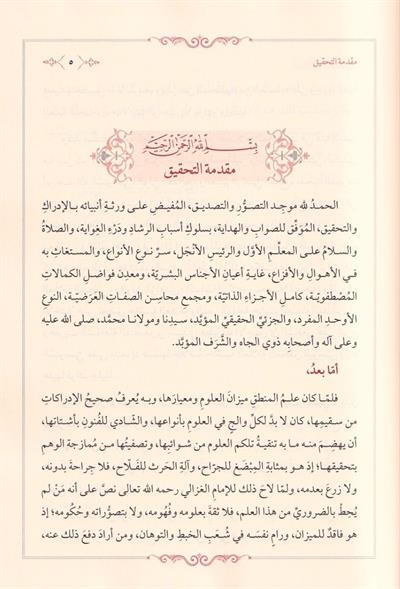 مقدمة التحقيق
٥
بِسْمِ اللهِ الرَّحْمَنِ الرَّحِيمِ
مقدمة التحقيق
الحمدُ لله موجِد التصوُّر والتصديق، المُفيضِ على ورثةِ أنبيائه بالإدراكِ
والتحقيق، المُوَفِّق للصوابِ والهداية، بسلوكِ أسبابِ الرشادِ ودَرْءِ الغِواية، والصلاةُ
والسلامُ على المعلِّمِ الأوَّل والرئيسِ الأنْجَل، سرِّ نوعِ الأنواع، والمستغاثِ به
في الأهوالِ والأفزاع، غايةِ أعيانِ الأجناس البشريّة، ومعدِن فواضلِ الكمالاتِ
المُصْطفويّة، كاملِ الأجزاءِ الذاتيّة، ومجمعِ محاسِنِ الصفاتِ العَرَضيّة، النوعِ
الأوحدِ المفرد، والجزئيِّ الحقيقيِّ المؤيَّد، سيدِنا ومولانا محمَّد، صلى الله عليه
وعلى آله وأصحابِه ذوي الجاه والشَّرَف المؤبَّد.
أمّا بعدُ،
فلمّا كان علمُ المنطقِ ميزانَ العلومِ ومعيارَها، وبه يُعرفُ صحيحُ الإدراكاتِ
من سقيمِها، كان لا بدَّ لكلِّ والجٍ في العلومِ بأنواعها، والشادي للفُنونِ بأشتاتها،
أن يهضِمَ منه ما به تنقيةُ تلكم العلوم من شوائبِها، وتصفيتُها من مُمازجة الوهم
بتحقيقها؛ إذ هو بمثابةِ المِبْضَعِ للجرّاح، وآلةِ الحَرث للفَلّاح، فلا جِراحةَ بدونه،
ولا زرعَ بعدمه، ولمّا لاحَ ذلك للإمامِ الغزالي رحمه الله تعالى نصَّ على أنه مَنْ لم
يُحِط بالضروريِّ من هذا العلم، فلا ثقةَ بعلومه وفُهُومه، ولا بتصوُّراته وحُكومه؛ إذ
هو فاقدٌ للميزان، ورامٍ نفسَه في شُعَبِ الخبطِ والتوهان، ومن أرادَ دفعَ ذلك عنه،